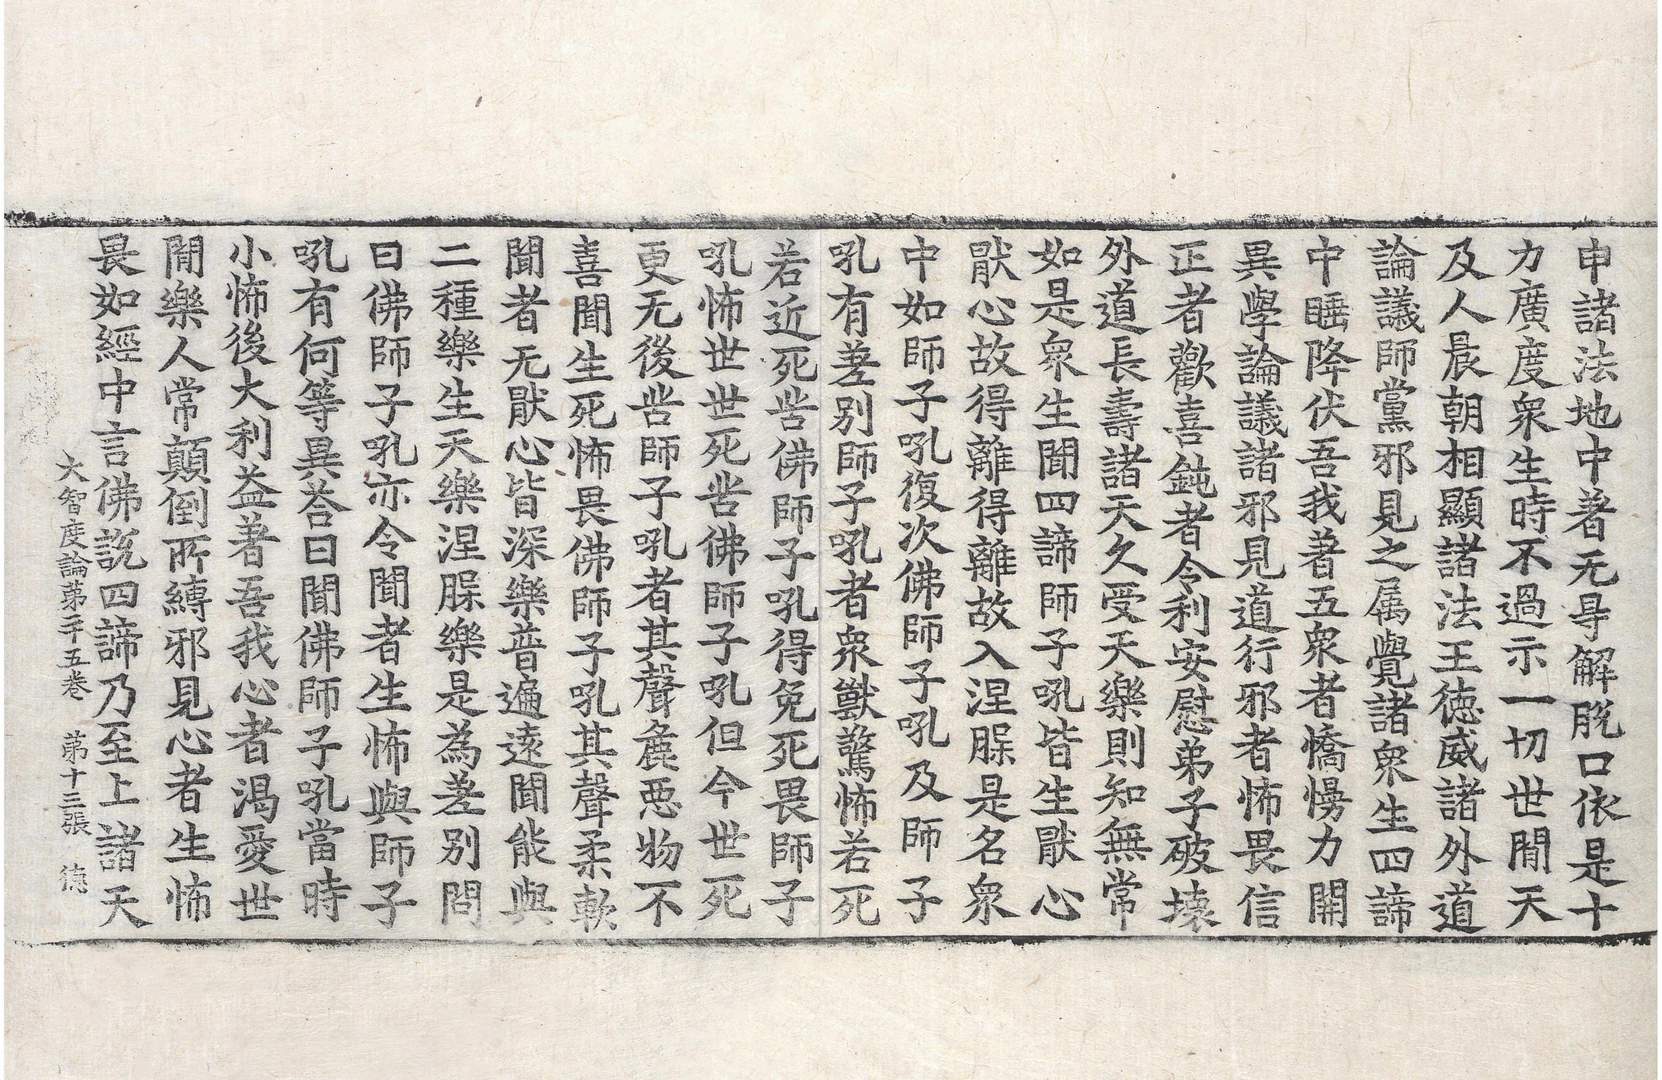 申諸法地中著无㝵解脫口依是十
力廣度衆生時不過示一切世閒天
及人晨朝相顯諸法王徳威諸外道
論議師黨邪見之属覺諸衆生四諦
中睡降伏吾我著五衆者憍慢力開
異學論議諸邪見道行邪者怖畏信
正者歡喜鈍者令利安慰弟子破壞
外道長壽諸天久受天樂則知無常
如是衆生聞四諦師子吼皆生猒心
猒心故得離得離故入涅槃是名衆
中如師子吼復次佛師子吼及師子
吼有差别師子吼者衆獸驚怖若死
若近死凿佛師子吼得免死畏師子
吼怖世世死凿佛師子吼但今世死
更无後凿師子吼者其聲麁惡物不
喜聞生死怖畏佛師子吼其聲柔軟
聞者无猒心皆深樂普遍遠聞能與
二種樂生天樂涅槃樂是為差别問
曰佛師子吼亦令聞者生怖與師子
吼有何等異荅曰聞佛師子吼當時
小怖後大利益著吾我心者渴愛世
閒樂人常顛倒所縛邪見心者生怖
畏如經中言佛說四諦乃至上諸天
大智度論第二十五卷　第十三張　徳